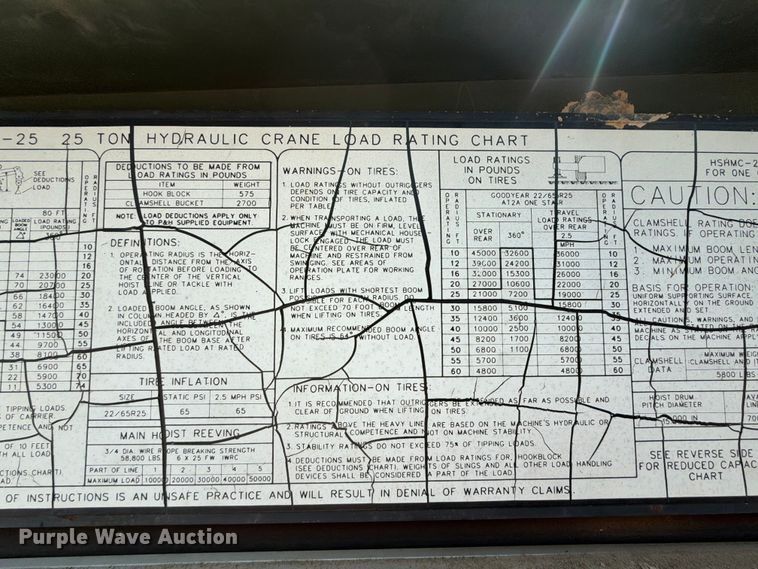 -25 25 TON HYDRAULIC CRANE LOAD RATING CHART
SEE
DEDUCTIONS
LOAD
80 FT
LOADED BOOM ANGLE
LOAD RATING
(POUNDS)
360°
OPERATING RADIUS FT
10
12
16
74 23000 20
70 20700 25
66 18400 30
62 16400 35
58 14700 40
54 13000 45
49 11500 50
44 9700 55
38 8100 60
31 6900 65
22 5900 70
11 5300 74
TIPPING LOADS.
S OF CARRIER.
PETENCE AND NOT
OF 10 FEET
WITH ALL LOAD
DEDUCTIONS TO BE MADE FROM
LOAD RATINGS IN POUNDS
ITEM WEIGHT
HOOK BLOCK 575
CLAMSHELL BUCKET 2700
NOTE: LOAD DEDUCTIONS APPLY ONLY
TO P&H SUPPLIED EQUIPMENT
DEFINITIONS:
1. OPERATING RADIUS IS THE HORIZ-
ONTAL DISTANCE FROM THE AXIS
OF ROTATION BEFORE LOADING TO
THE CENTER OF THE VERTICAL
HOIST LINE OR TACKLE WITH
LOAD APPLIED.
2. LOADED BOOM ANGLE, AS SHOWN
IN COLUMN HEADED BY IS THE
INCLUDED ANGLE BETWEEN THE
HORIZONTAL AND LONGITUDINAL
AXES OF THE BOOM BASE AFTER
LIFTING RATED LOAD AT RATED
RADIUS.
TIRE INFLATION
SIZE STATIC PSI 2.5 MPH PSI
22/65R25 65 65
MAIN HOIST REEVING
3/4 DIA. WIRE ROPE BREAKING STRENGTH
58,800 LBS. 6 X 25 FW IWRC
PART OF LINE 1 2 3 4 5
MAXIMUM LOAD 10000 20000 30000 40000 50000
WARNINGS-ON TIRES:
1. LOAD RATINGS WITHOUT OUTRIGGERS
DEPENDS ON TIRE CAPACITY AND
CONDITION OF TIRES, INFLATED
PER TABLE.
2. WHEN TRANSPORTING A LOAD, THE
MACHINE MUST BE ON FIRM, LEVEL
SURFACE, WITH MECHANICAL HOUSE
LOCK ENGAGED. THE LOAD MUST
BE CENTERED OVER REAR OF
MACHINE AND RESTRAINED FROM
SWINGING. SEE AREAS OF
OPERATION PLATE FOR WORKING
RANGES.
3. LIFT LOADS WITH SHORTEST BOOM
POSSIBLE FOR EACH RADIUS. DO
NOT EXCEED 70 FOOT BOOM LENGTH
WHEN LIFTING ON TIRES.
4. MAXIMUM RECOMMENDED BOOM ANGLE
ON TIRES IS 64° WITHOUT LOAD.
INFORMATION-ON TIRES:
1. IT IS RECOMMENDED THAT OUTRIGGERS BE EXTENDED AS FAR AS POSSIBLE AND
CLEAR OF GROUND WHEN LIFTING ON TIRES.
2. RATINGS ABOVE THE HEAVY LINE ARE BASED ON THE MACHINE'S HYDRAULIC OR
STRUCTURAL COMPETENCE AND NOT ON MACHINE STABILITY.
3. STABILITY RATINGS DO NOT EXCEED 75% OF TIPPING LOADS.
4. DEDUCTIONS MUST BE MADE FROM LOAD RATINGS FOR, HOOKBLOCK
(SEE DEDUCTIONS CHART). WEIGHTS OF SLINGS AND ALL OTHER LOAD HANDLING
DEVICES SHALL BE CONSIDERED A PART OF THE LOAD.
LOAD RATINGS
IN POUNDS
ON TIRES
OPERATING RADIUS FT
GOODYEAR 22/65R25
AT2A ONE STAR
STATIONARY
TRAVEL
LOAD RATINGS
OVER REAR
OVER
REAR 360° 2.5
MPH
10 45000 32600 36000 10
12 39000 24200 31000 12
16 32000 15300 26000 16
20 27000 10600 22000 20
25 21000 7200 19000 25
30 15800 5100 15800 30
35 12400 3600 12400 35
40 10000 2500 10000 40
45 8200 1700 8200 45
50 6800 1100 6800 50
55 5700 5700 55
60 4800 4800 60
HSHMC-2
FOR ONE
CAUTION:
CLAMSHELL RATING DOE
RATINGS IF OPERATING
1. MAXIMUM BOOM LEN
2. MAXIMUM OPERATIN
3. MINIMUM BOOM AN
BASIS FOR OPERATION:
UNIFORM SUPPORTING SURFACE,
HORIZONTALLY ON THE GROUN
EXTENDED AND SET.
ALL CAUTIONS, WARNINGS, AND
MACHINE AS LOCATED ON THE
DECALS ON THE MACHINE APPLY
CLAMSHELL
DATA
MAXIMUM WEIGH
CLAMSHELL AND
5800 LBS
HOIST DRUM
PITCH DIAMETER
15.000 IN
SEE REVERSE SIDE
FOR REDUCED CAPAC
CHART
OF INSTRUCTIONS IS AN UNSAFE PRACTICE AND WILL RESULT IN DENIAL OF WARRANTY CLAIMS.
Purple Wave Auction